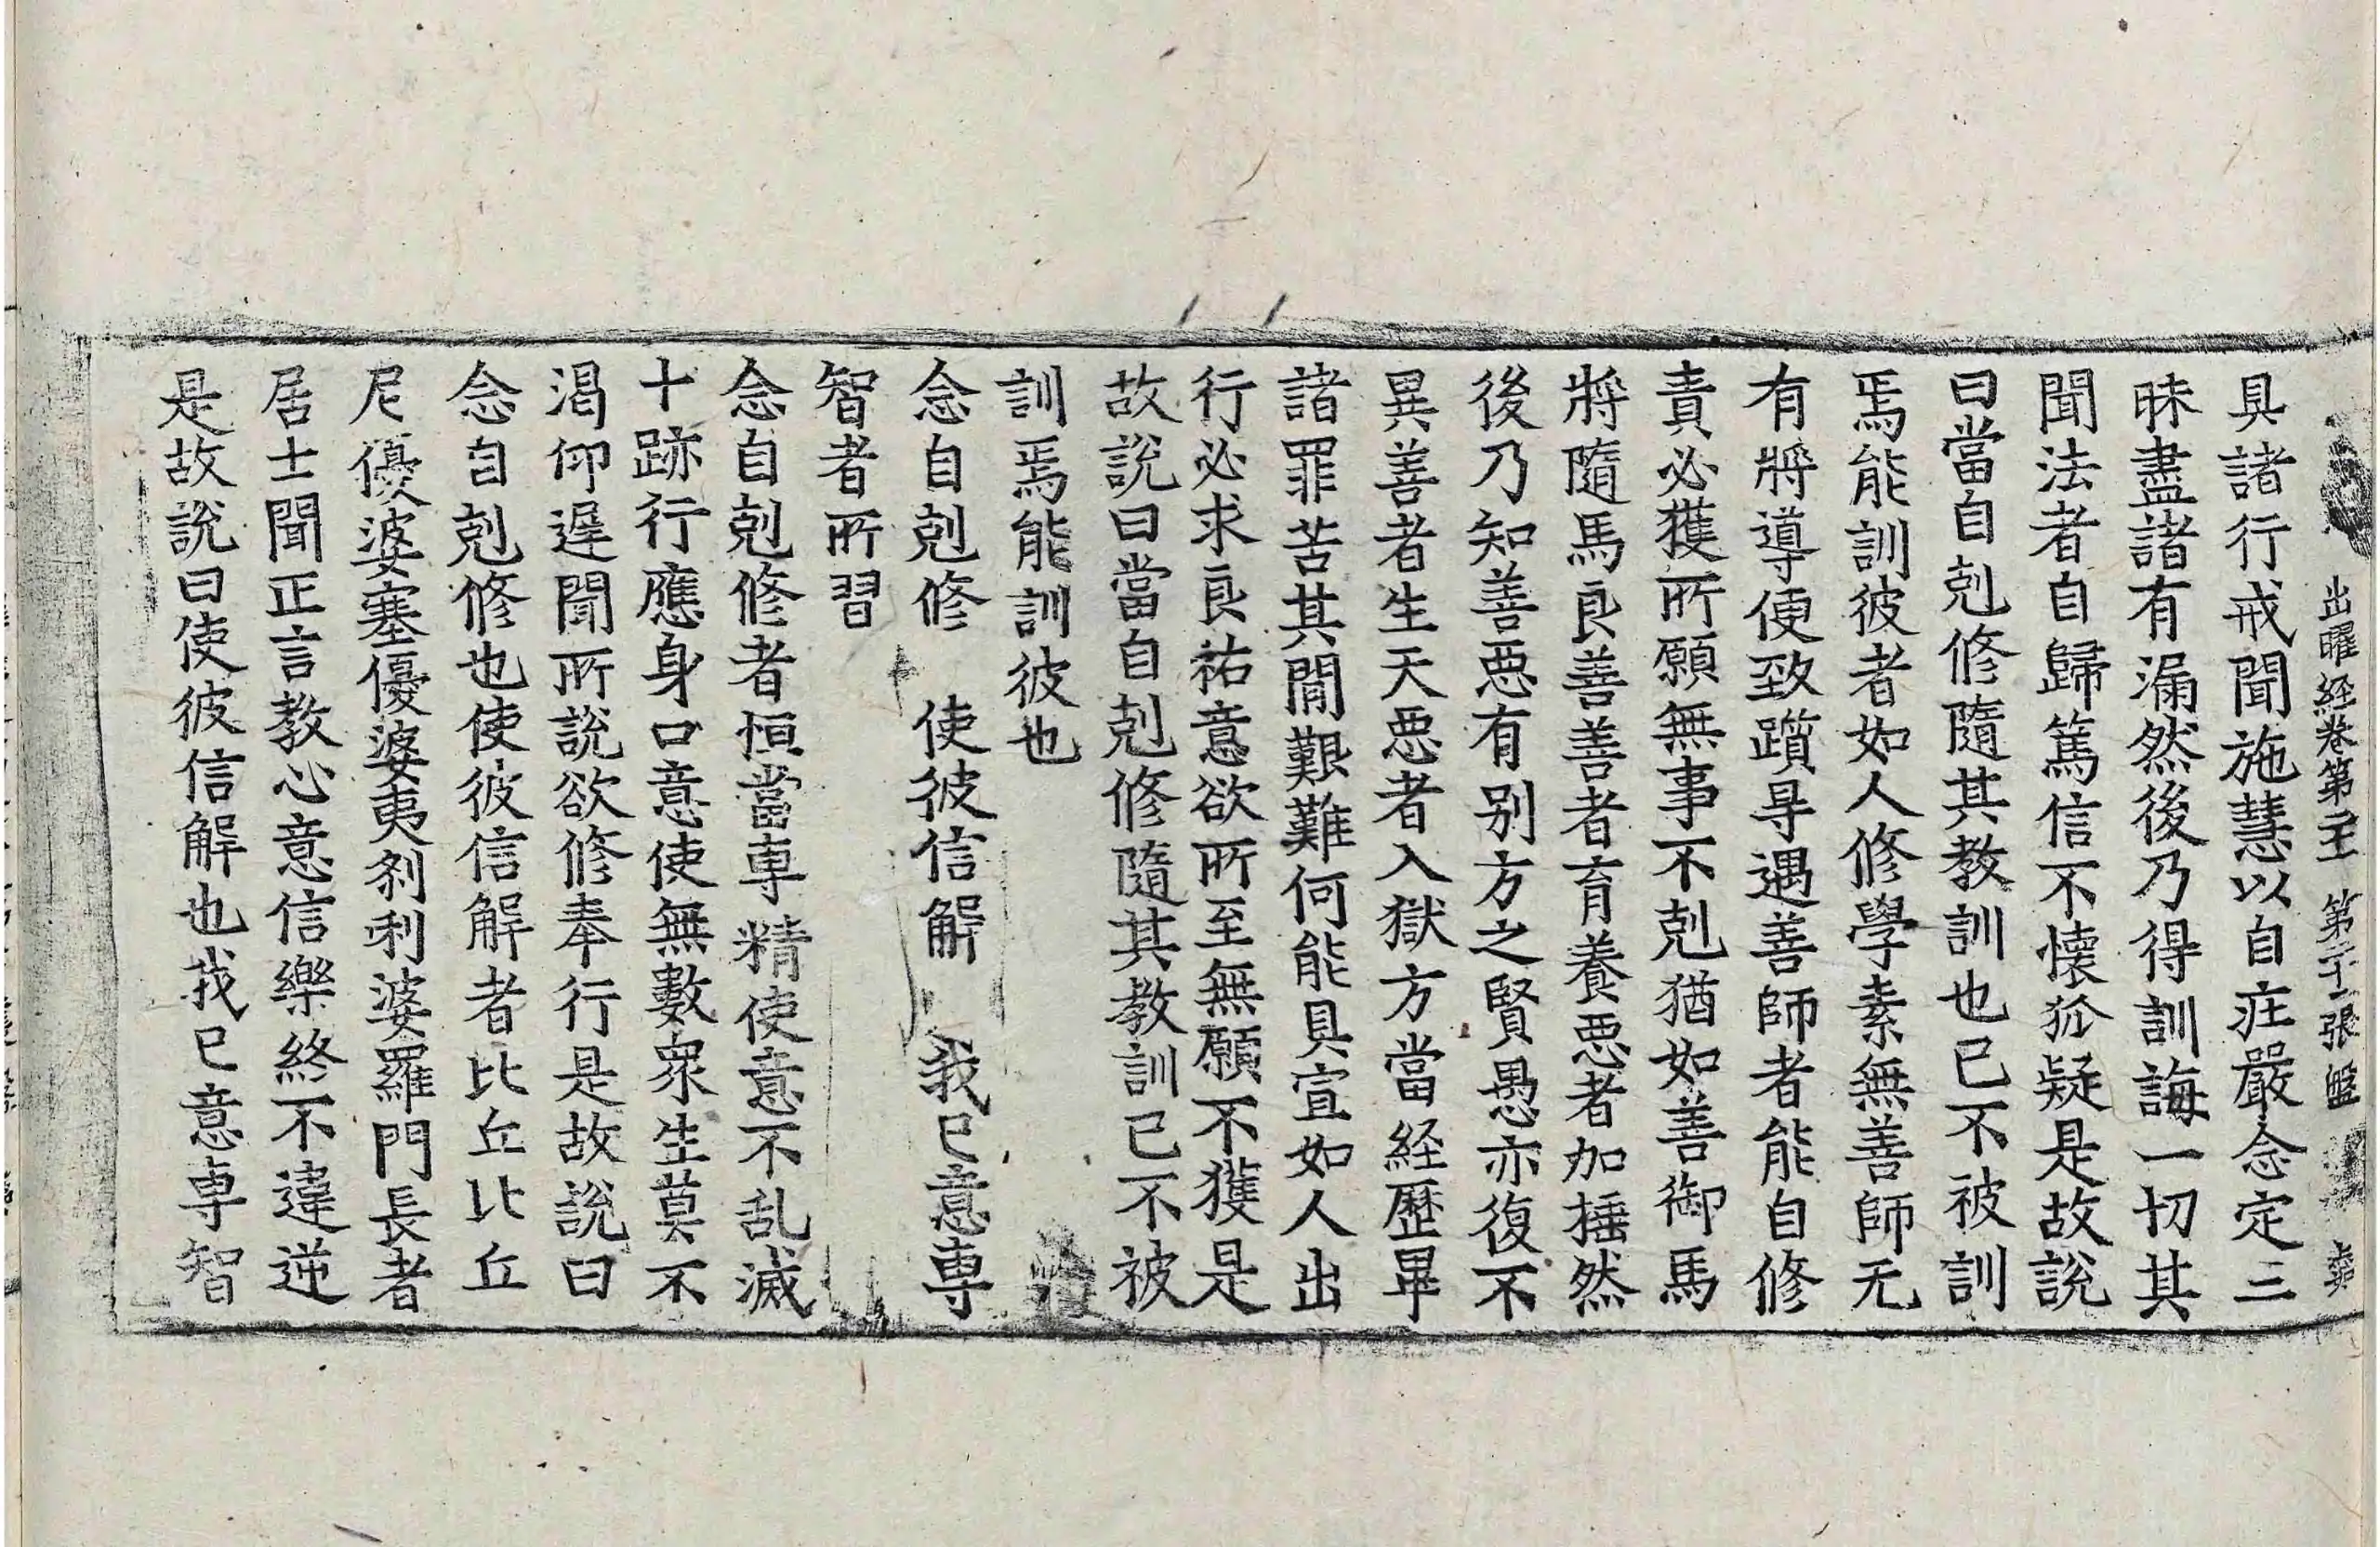 出曜経卷第二十 第二十二張 盤
具諸行戒聞施慧以自疘嚴念定三
昧盡諸有漏然後乃得訓誨一切其
聞法者自歸篤信不懐狐疑是故說
曰當自剋修隨其教訓也已不被訓
焉能訓彼者如人修學素無善師无
有將導便致躓㝵遇善師者能自修
責必獲所願無事不剋猶如善御馬
將隨馬良善善者育養悪者加捶然
後乃知善悪有別方之賢愚亦復不
異善者生天悪者入獄方當経歷畢
諸罪苦其間艱難何能具宣如人出
行必求良祐意欲所至無願不獲是
故說曰當自剋修隨其教訓已不被
訓焉能訓彼也
念自剋修 使彼信解 我已意專
智者所習
念自剋修者恒當專精使意不乱滅
十跡行應身口意使無數衆生莫不
渴仰遲聞所說欲修奉行是故說曰
念自剋修也使彼信解者比丘比丘
尼優婆塞優婆夷刹利婆羅門長者
居士聞正言教心意信樂終不違逆
是故說曰使彼信解也我已意専智